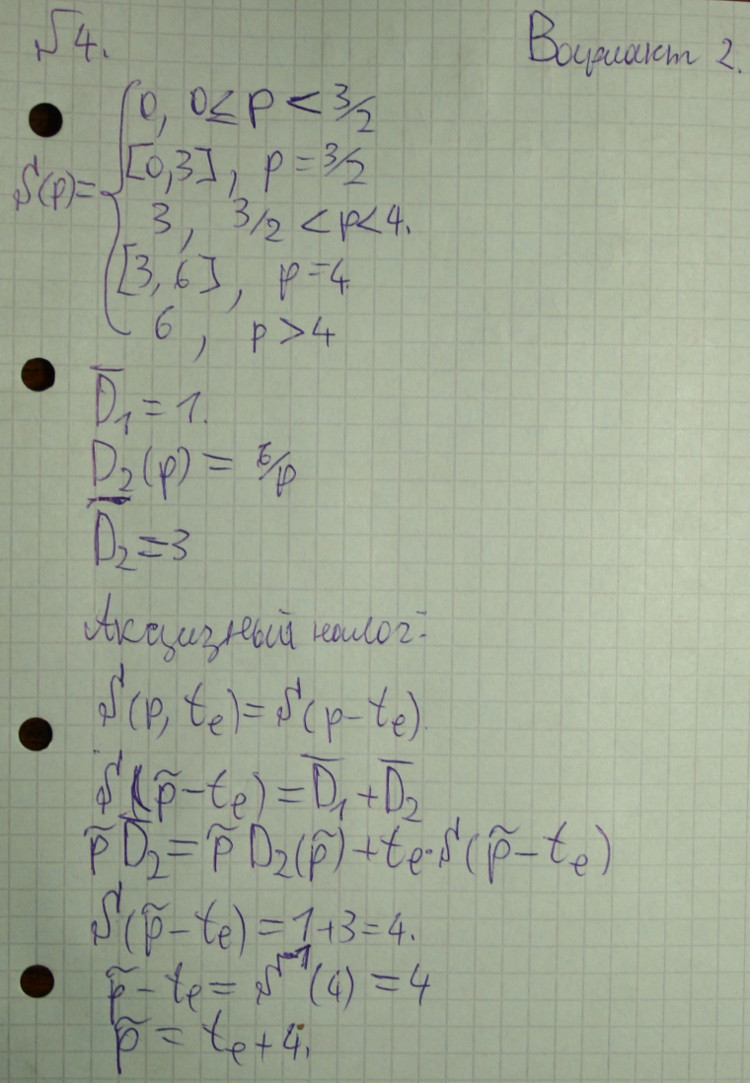 №4.
Вариант 2.
S(p) = { 0, 0 ≤ p < 3/2
[0,3], p = 3/2
3, 3/2 < p < 4.
[3,6], p = 4
6, p > 4
D̅₁ = 1.
D₂(p) = 6/p
D̅₂ = 3
Акцизный налог:
S(p, tₑ) = S(p – tₑ).
S(p̃ – tₑ) = D̅₁ + D̅₂
p̃ D̅₂ = p̃ D₂(p̃) + tₑ · S(p̃ – tₑ)
S(p̃ – tₑ) = 1 + 3 = 4.
p̃ – tₑ = S⁻¹(4) = 4
p̃ = tₑ + 4.